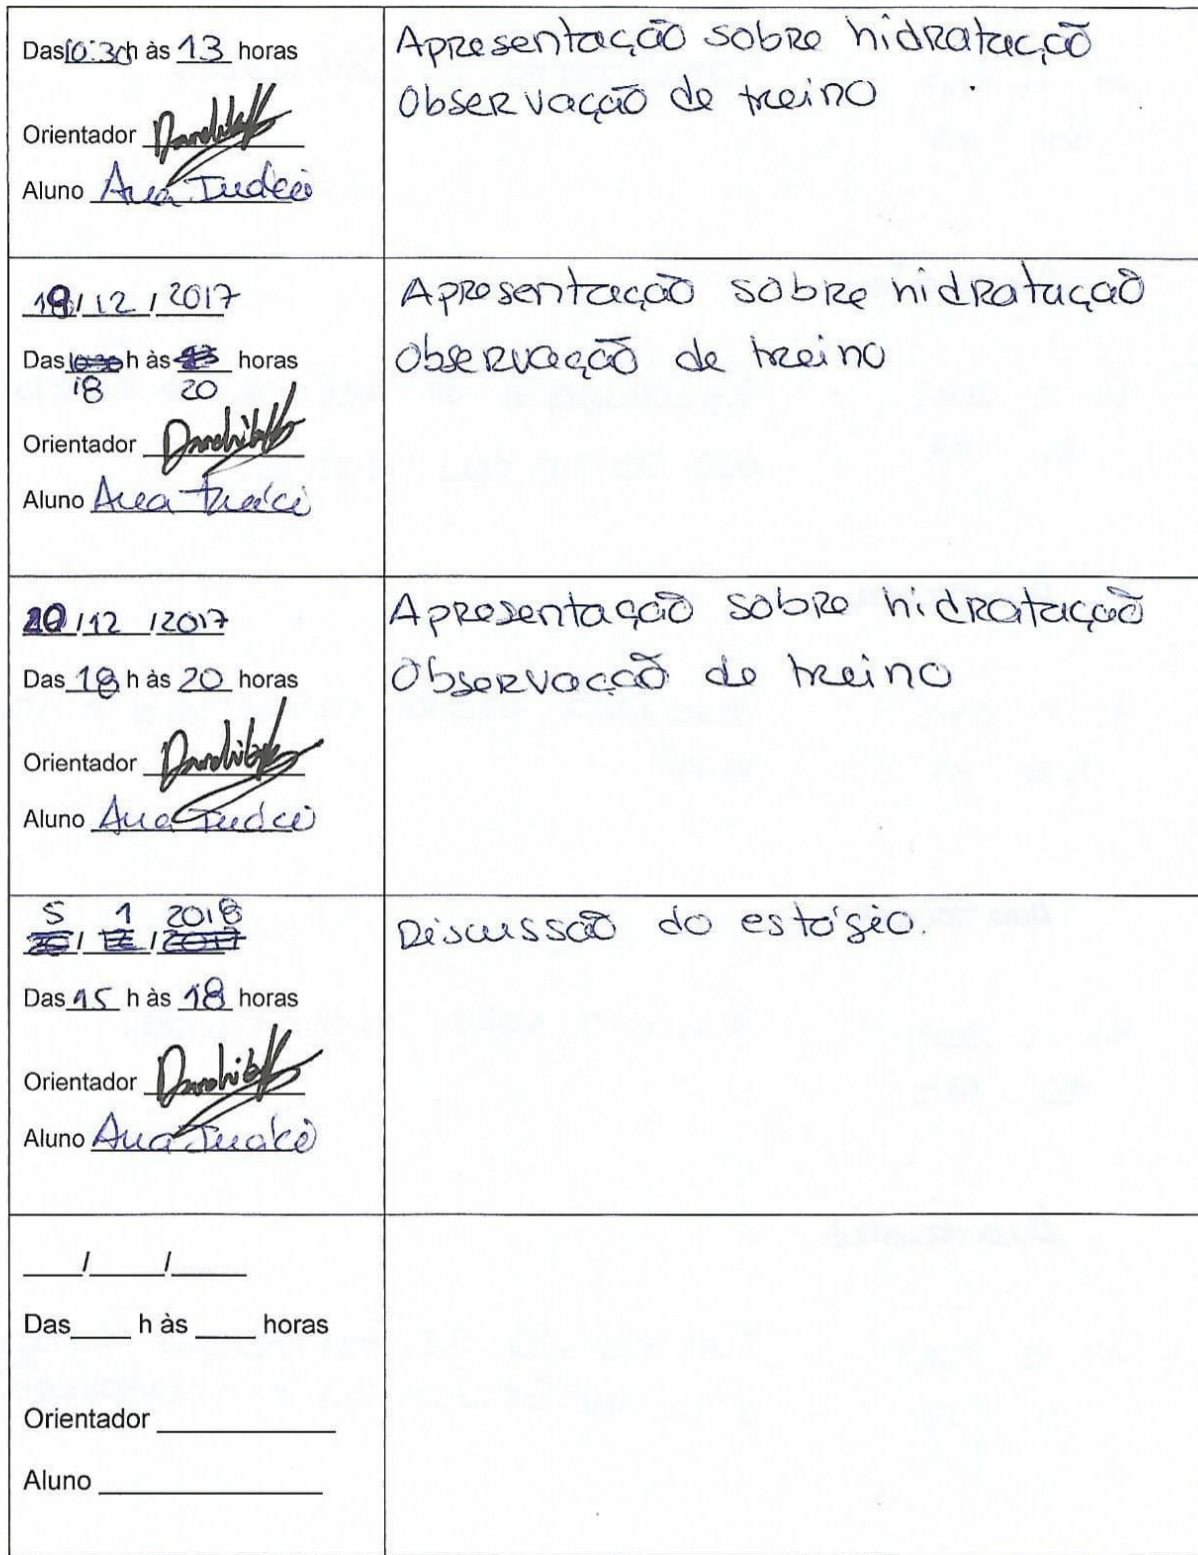 Das 10:30h às 13 horas
Orientador
Aluno Ana
Apresentação sobre hidratação
Observação de treino
18/12/2017
Das 10:30 h às 13 horas
18 20
Orientador
Aluno Ana
Apresentação sobre hidratação
Observação de treino
20/12/2017
Das 18 h às 20 horas
Orientador
Aluno Ana
Apresentação sobre hidratação
Observação de treino
5 1 2018
20/12/2017
Das 15 h às 18 horas
Orientador
Aluno Ana
Discussão do estágio.
____/____/____
Das____ h às ____ horas
Orientador ____________
Aluno ____________